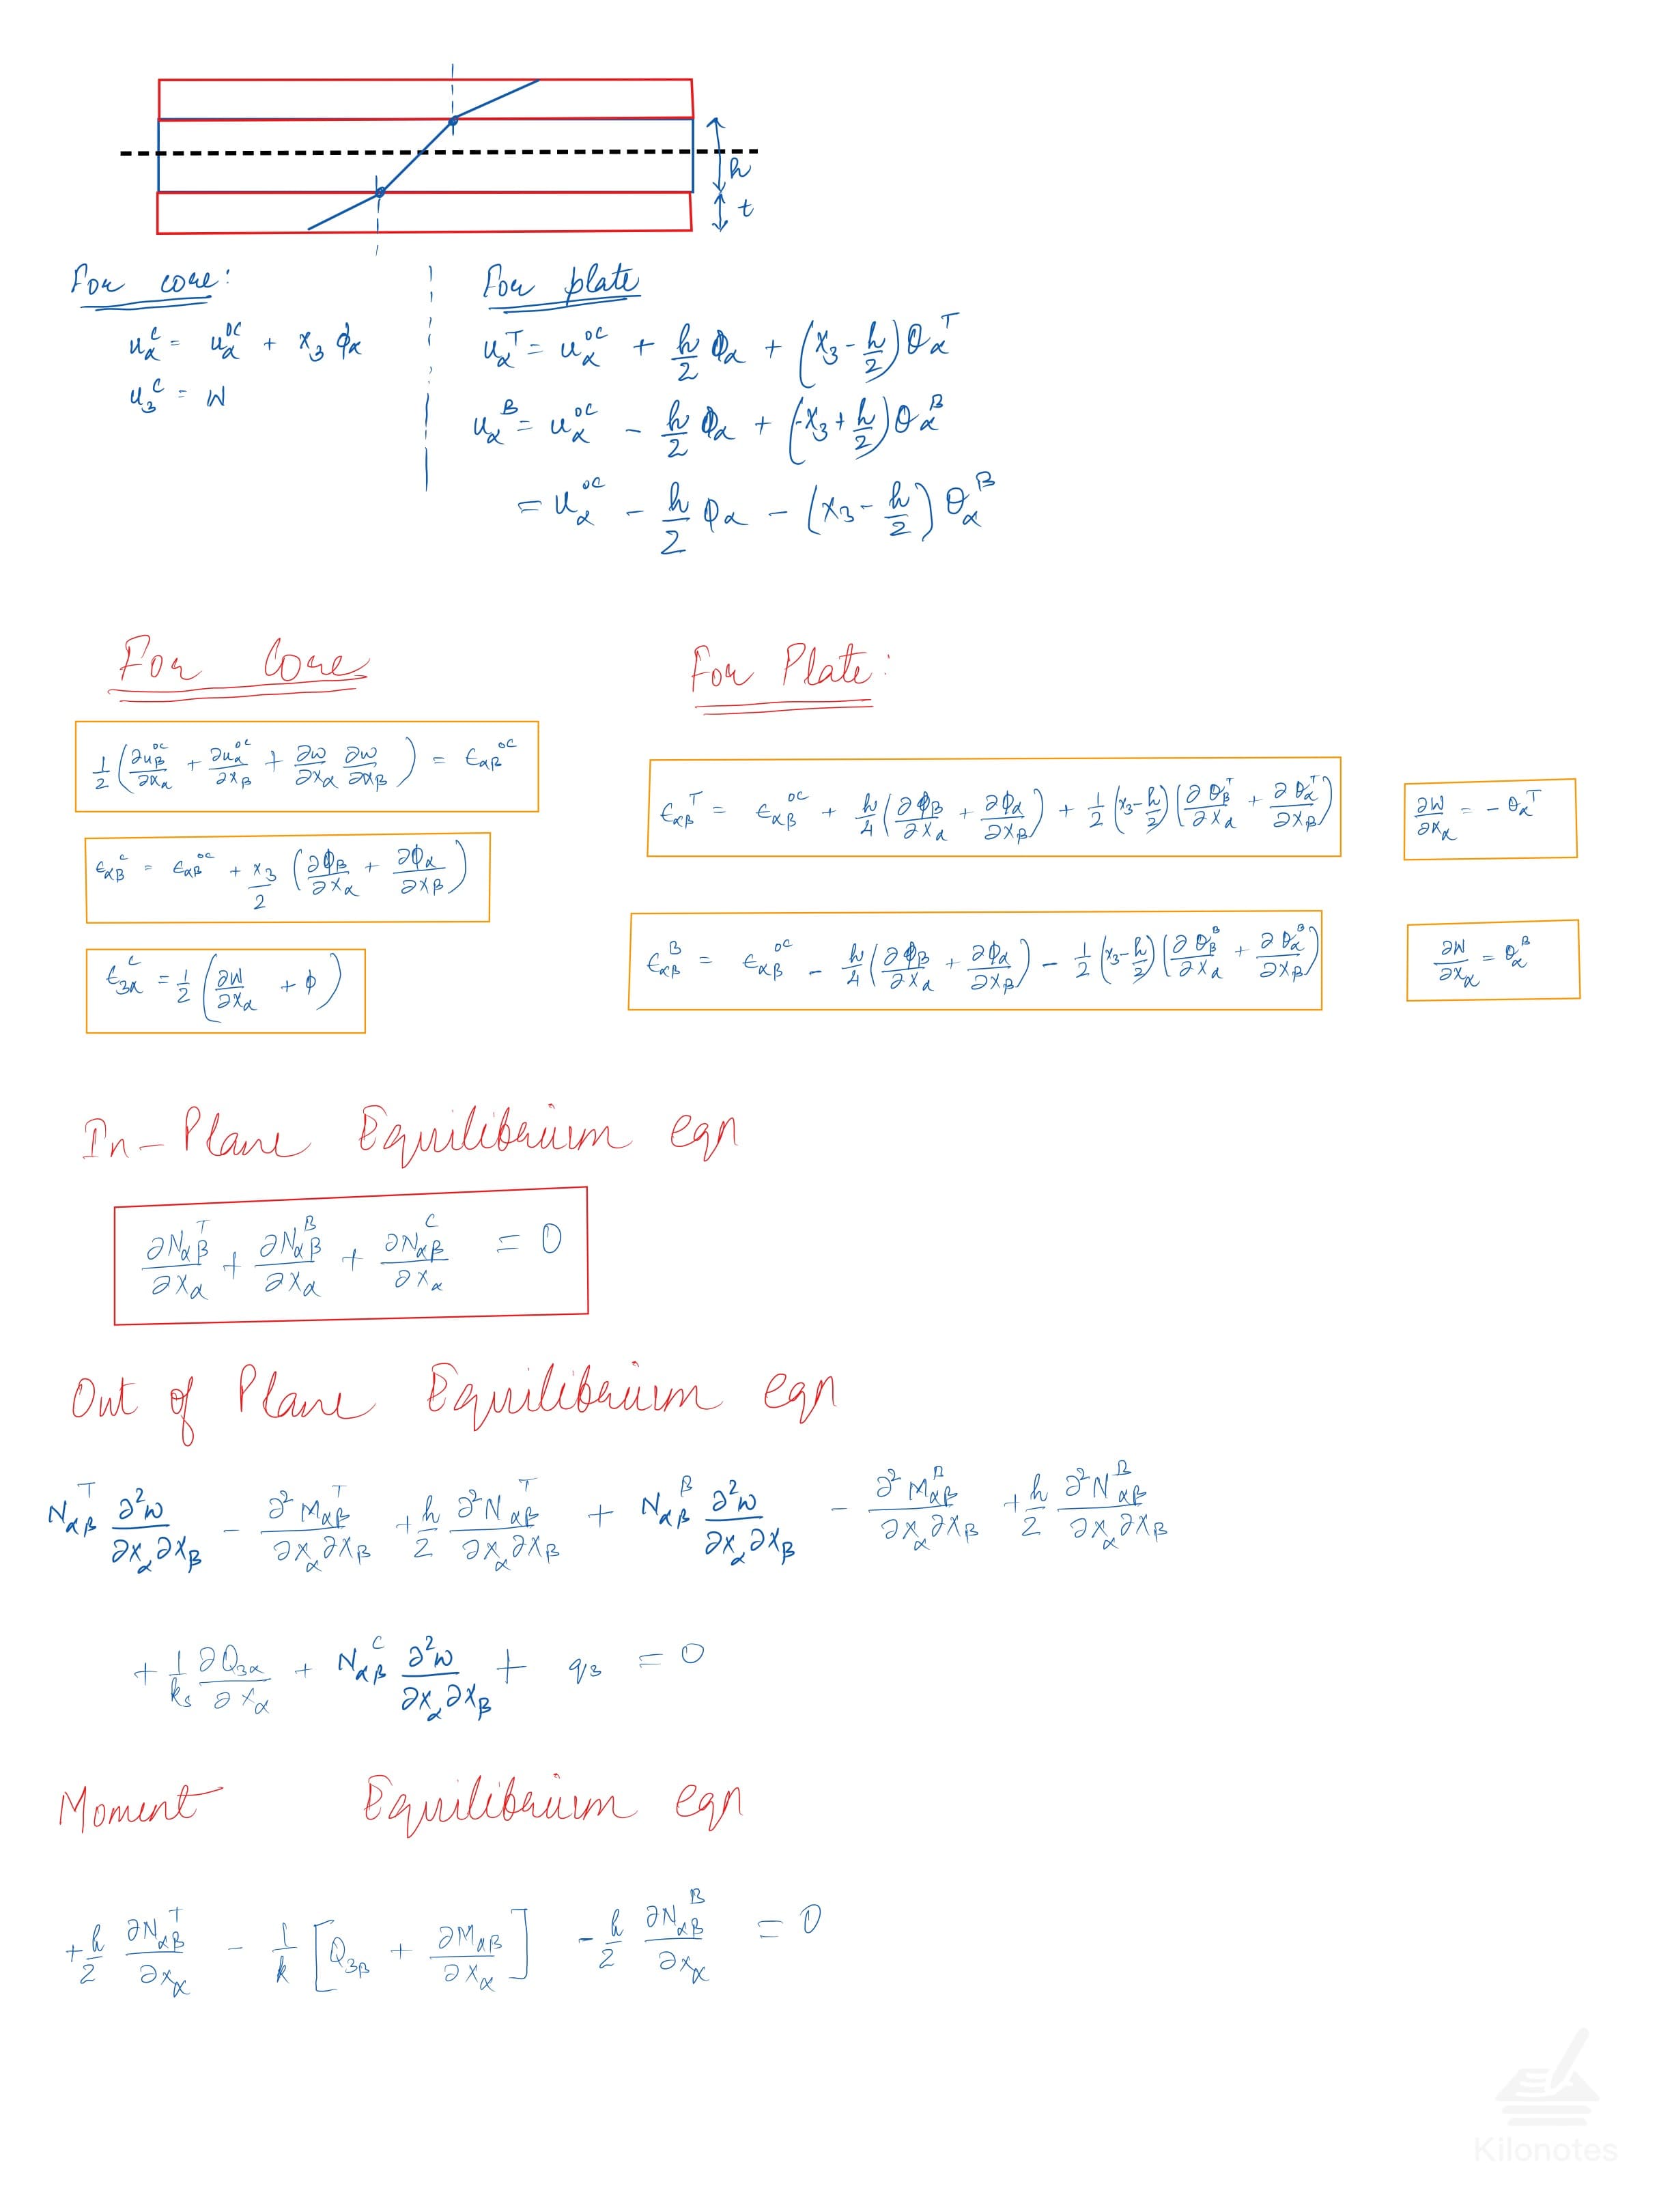 h
t
For core:
u_α^c = u_α^oc + x_3 ϕ_α
u_3^c = w
For plate
u_α^T = u_α^oc + h/2 ϕ_α + (x_3 - h/2) θ_α^T
u_α^B = u_α^oc - h/2 ϕ_α + (-x_3 + h/2) θ_α^B
= u_α^oc - h/2 ϕ_α - (x_3 - h/2) θ_α^B
For Core
1/2 (∂u_β^oc/∂x_α + ∂u_α^oc/∂x_β + ∂w/∂x_α ∂w/∂x_β) = ϵ_αβ^oc
ϵ_αβ^c = ϵ_αβ^oc + x_3/2 (∂ϕ_β/∂x_α + ∂ϕ_α/∂x_β)
ϵ_3α^c = 1/2 (∂w/∂x_α + ϕ)
For Plate:
ϵ_αβ^T = ϵ_αβ^oc + h/4 (∂ϕ_β/∂x_α + ∂ϕ_α/∂x_β) + 1/2 (x_3 - h/2) (∂θ_β^T/∂x_α + ∂θ_α^T/∂x_β)
∂w/∂x_α = - θ_α^T
ϵ_αβ^B = ϵ_αβ^oc - h/4 (∂ϕ_β/∂x_α + ∂ϕ_α/∂x_β) - 1/2 (x_3 - h/2) (∂θ_β^B/∂x_α + ∂θ_α^B/∂x_β)
∂w/∂x_α = θ_α^B
In-Plane Equilibrium eqn
∂N_αβ^T/∂x_α + ∂N_αβ^B/∂x_α + ∂N_αβ^C/∂x_α = 0
Out of Plane Equilibrium eqn
N_αβ^T ∂²w/∂x_α∂x_β - ∂²M_αβ^T/∂x_α∂x_β + h/2 ∂²N_αβ^T/∂x_α∂x_β + N_αβ^B ∂²w/∂x_α∂x_β - ∂²M_αβ^B/∂x_α∂x_β + h/2 ∂²N_αβ^B/∂x_α∂x_β
+ 1/k_s ∂Q_3α/∂x_α + N_αβ^C ∂²w/∂x_α∂x_β + q_3 = 0
Moment Equilibrium eqn
+ h/2 ∂N_αβ^T/∂x_α - 1/k [Q_3β + ∂M_αβ/∂x_α] - h/2 ∂N_αβ^B/∂x_α = 0
Kilonotes